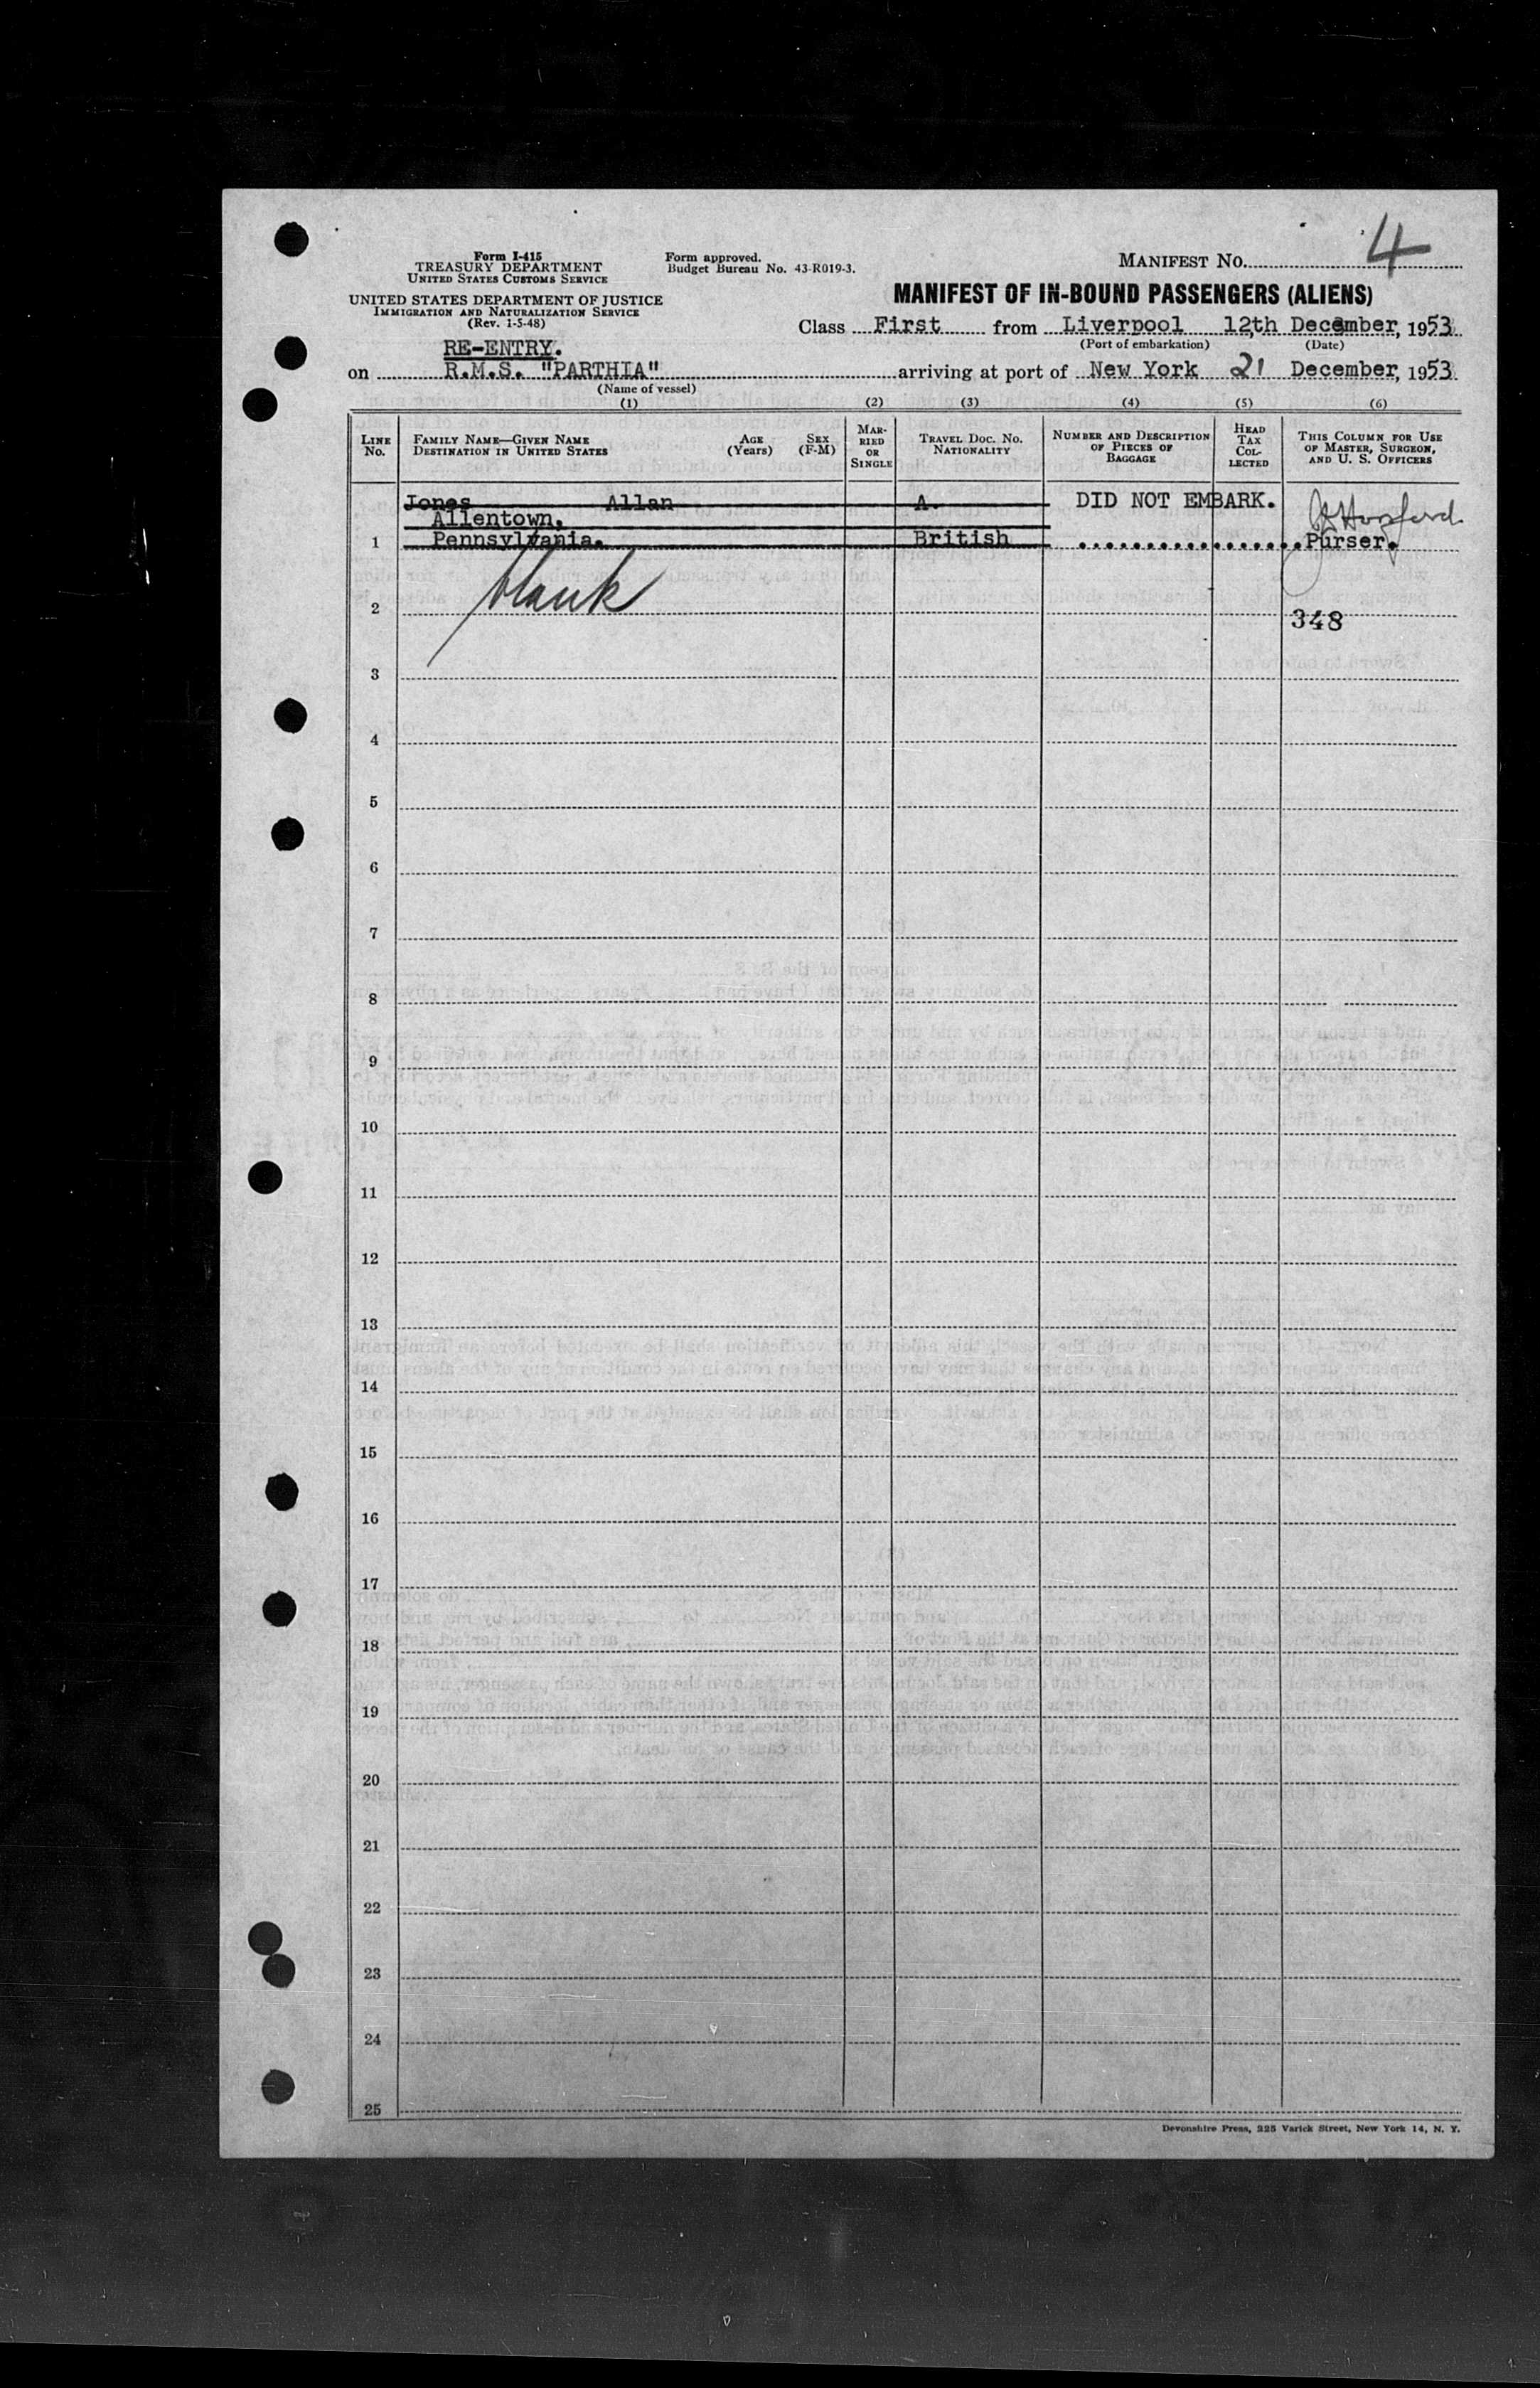 4
Form I-415
TREASURY DEPARTMENT
UNITED STATES CUSTOMS SERVICE
Form approved.
Budget Bureau No. 43-R019-3.
MANIFEST NO.
UNITED STATES DEPARTMENT OF JUSTICE
IMMIGRATION AND NATURALIZATION SERVICE
(Rev. 1-5-48)
MANIFEST OF IN-BOUND PASSENGERS (ALIENS)
Class First from Liverpool 12th December, 1953.
(Port of embarkation) (Date)
RE-ENTRY.
on R.M.S. "PARTHIA" arriving at port of New York 21 December, 1953.
(Name of vessel)
(1) (2) (3) (4) (5) (6)
LINE No. FAMILY NAME—GIVEN NAME DESTINATION IN UNITED STATES AGE (Years) SEX (F-M) MARRIED OR SINGLE TRAVEL DOC. NO. NATIONALITY NUMBER AND DESCRIPTION OF PIECES OF BAGGAGE HEAD TAX COLLECTED THIS COLUMN FOR USE OF MASTER, SURGEON, AND U. S. OFFICERS
Jones Allan A. DID NOT EMBARK.
Allentown,
1 Pennsylvania. British Purser.
blank
2 348
3
4
5
6
7
8
9
10
11
12
13
14
15
16
17
18
19
20
21
22
23
24
25
Devonshire Press, 225 Varick Street, New York 14, N. Y.